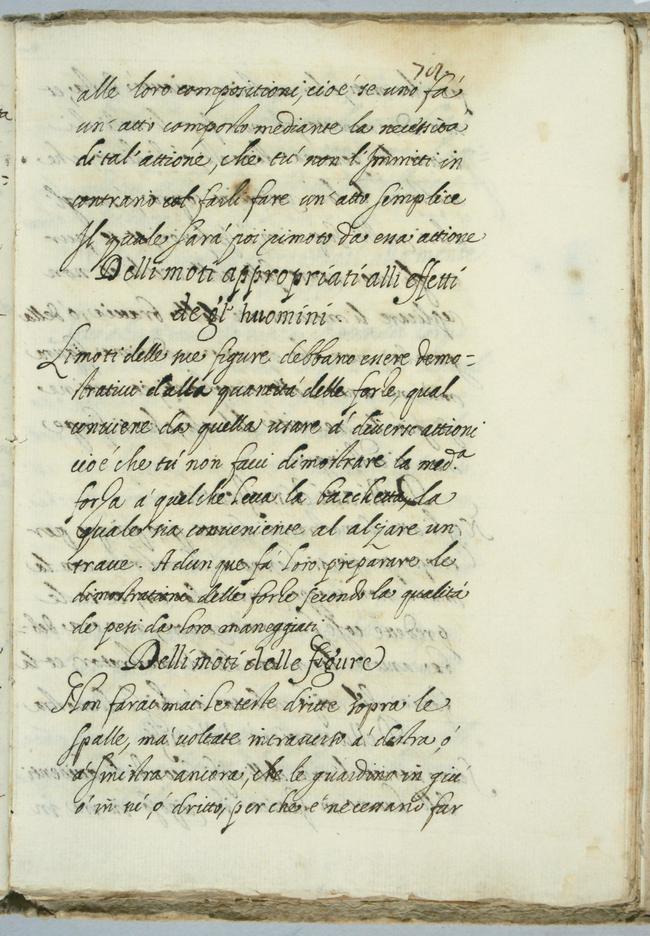 alle loro compositioni, cioé se uno fá
un' atto composto mediante la necessitá
di tal' attione, che tú non l' immiti in
contrario col farli fare un' atto semplice
Il quale sará poi rimoto da essa attione
Delli moti appropriati alli effetti
de gl' huomini
Li moti delle tue figure debbano essere demo=
strativi della quantitá delle forze, qual
conviene da quella usare á diverse attioni
cioé che tú non facci dimostrare la med.a
forza á quel che leva la bacchetta, la
quale sia conveniente al alzare un
trave. Adunque fá loro preparare le
dimostrationi delle forze secondo la qualitá
de pesi da loro maneggiati
Delli moti delle figure
Non farai mai le teste dritte sopra le
spalle, má voltate intraverso á destra ó
á sinistra ancora, che le guardino in giú
ó in sú, ó dritto, perche é necessario far